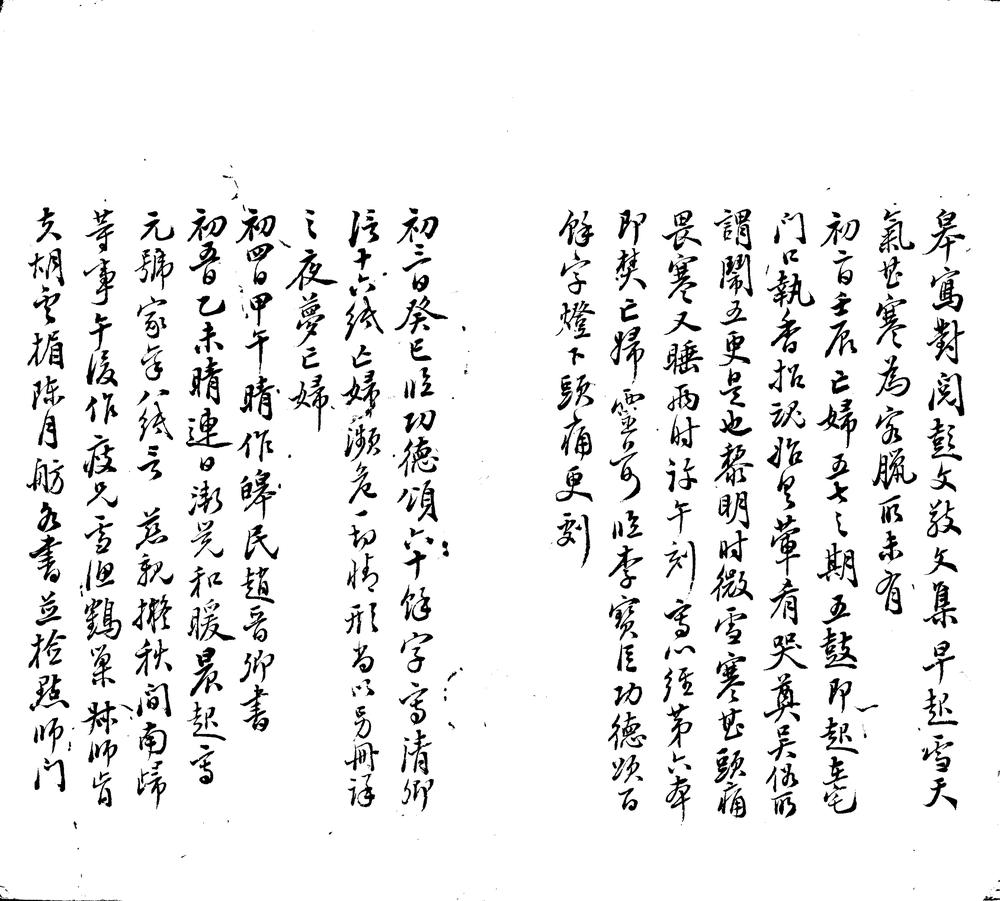 皋寫對閱彭文敬文集早起雪天
氣甚寒為客臘所未有
初二日壬辰亡婦五七之期五鼓即起在宅
門口執香招魂始具葷肴哭奠吳俗所
謂鬧五更是也黎明時微雪寒甚頭痛
畏寒又睡兩時許午刻寫心經第六本
即焚亡婦靈前臨李寶臣功德頌百
餘字燈下頭痛更劇
初三日癸巳臨功德頌六十餘字寫清卿
信十六紙亡婦瀕危一切情形皆以另冊詳
之夜夢亡婦
初四日甲午晴作皞民趙晉卿書
初五日乙未晴連日漸覺和暖晨起寫
元號家字八紙言慈親擬秋間南歸
等事午後作疲兄雪漁鶴巢妹師肯
夫胡雲楣陳月舫各書並檢點師門